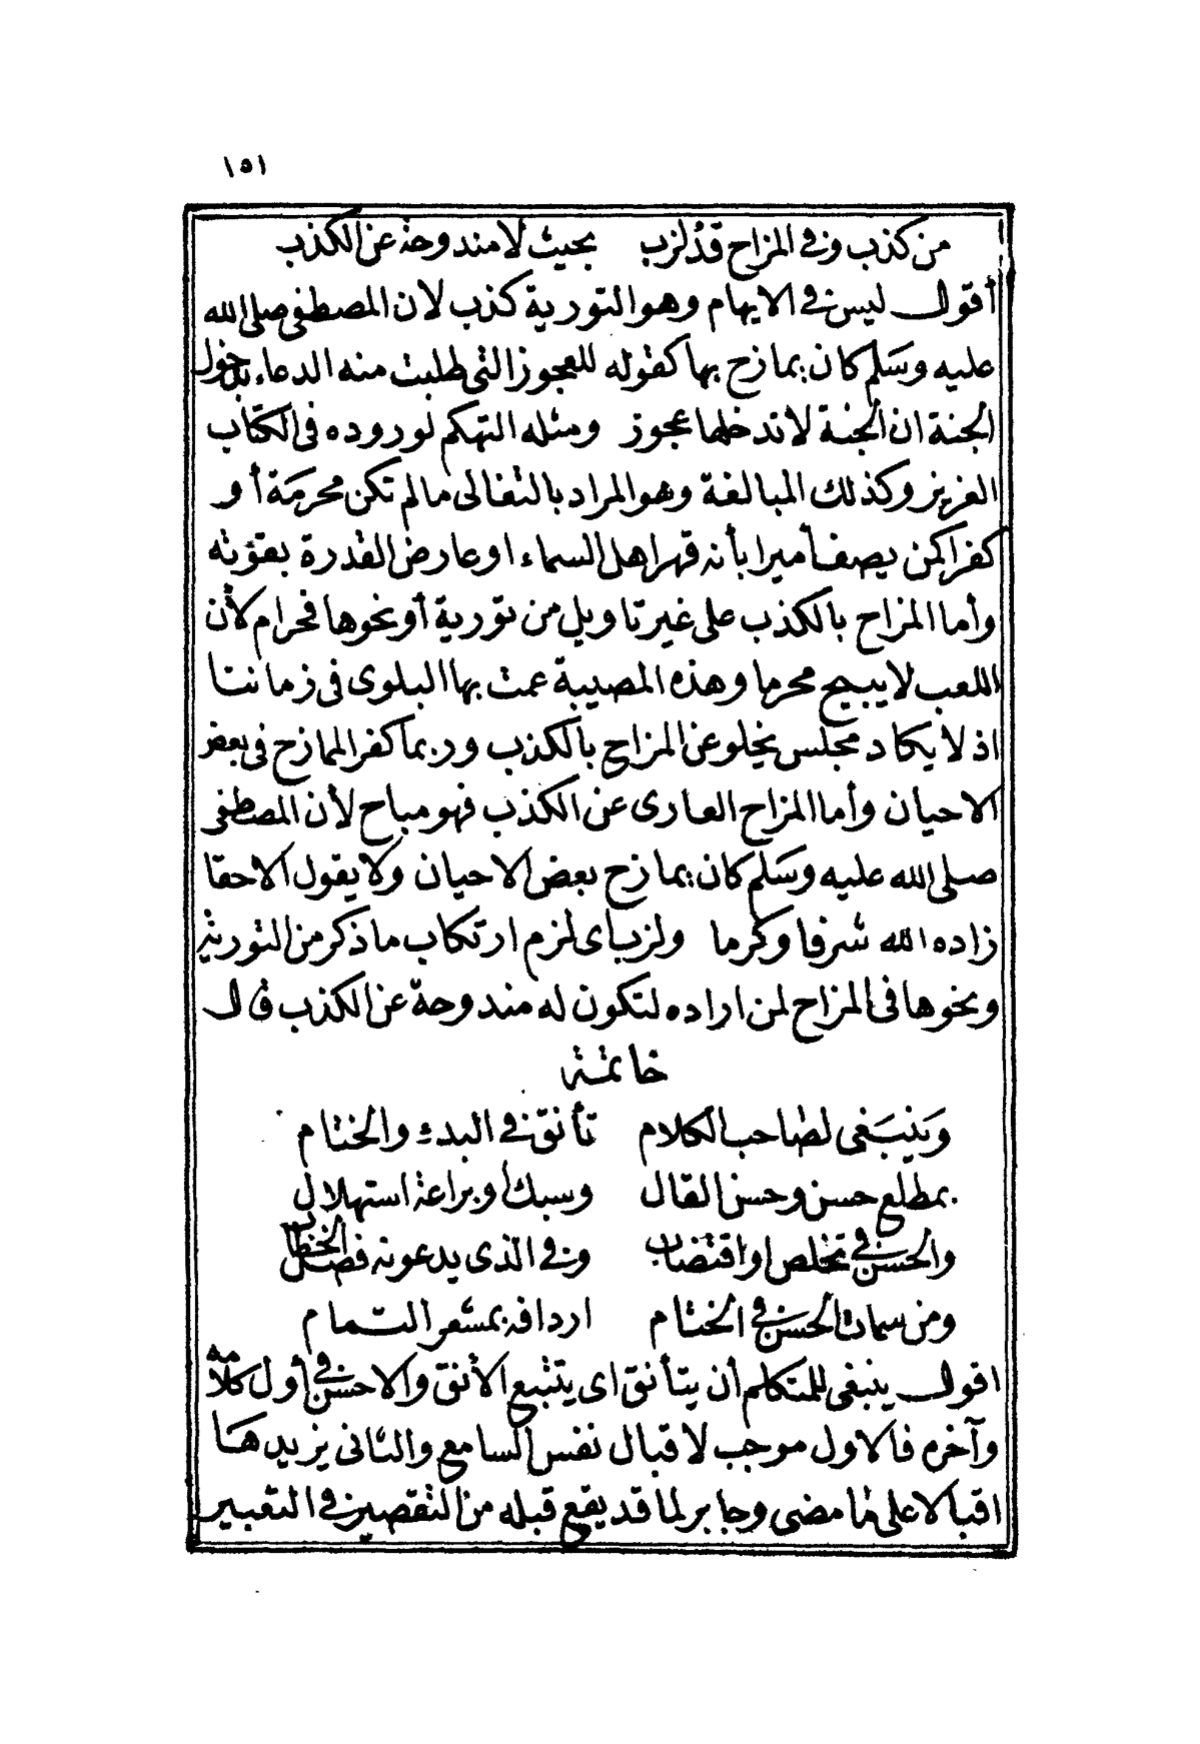 ١٥١
من كذب وفي المزاح قد لزب بحيث لا مندوحة عن الكذب
أقول ليس في الايهام وهو التورية كذب لان المصطفى صلى الله
عليه وسلم كان يمازح بها كقوله للعجوز التي طلبت منه الدعاء بدخول
الجنة ان الجنة لا تدخلها عجوز ومثله التهكم لوروده فى الكتاب
العزيز وكذلك المبالغة وهو المراد بالتغالى مالم تكن محرمة أو
كفرا كمن يصف أميرا بأنه قهر اهل السماء او عارض القدرة بقوته
وأما المزاح بالكذب على غير تاويل من تورية أو نحوها فحرام لأن
اللعب لا يبيح محرما وهذه المصيبة عمت بها البلوى فى زماننا
اذ لا يكاد مجلس يخلو عن المزاح بالكذب وربما كفر الممازح فى بعض
الاحيان وأما المزاح العارى عن الكذب فهو مباح لأن المصطفى
صلى الله عليه وسلم كان يمازح بعض الاحيان ولا يقول الا حقا
زاده الله شرفا وكرما ولزب اى لزم ارتكاب ما ذكر من التورية
ونحوها فى المزاح لمن اراده لتكون له مندوحة عن الكذب قال
خاتمة
وينبغى لصاحب الكلام تأنق في البدء والختام
بمطلع حسن وحسن القال وسبك او براعة استهلال
والحسن في تخلص او اقتضاب وفي الذى يدعونه فصل الخطاب
ومن سمات الحسن في الختام اردافه بمشعر التمام
اقول ينبغى للمتكلم أن يتأنق اى يتتبع الأنق والاحسن في أول كلامه
وآخره فالاول موجب لاقبال نفس السامع والثانى يزيدها
اقبالا على ما مضى وجابر لما قد يقع قبله من التقصير في التعبير